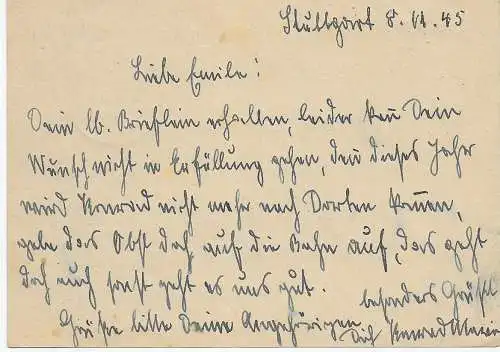 Stuttgart 8. 11. 45
Liebe Emile!
Dein lb. Brieflein erhalten, leider kan̄ Dein
Wunsch nicht in Erfüllung gehen, den̄ dieses Jahr
wird Konrad nicht mehr nach Dorten kom̄en,
gebe das Obst doch auf die Bahn auf, das geht
doch auch sonst geht es uns gut.
besonders Grüßt
Grüße bitte Deine Angehörigen. Dich Konrad